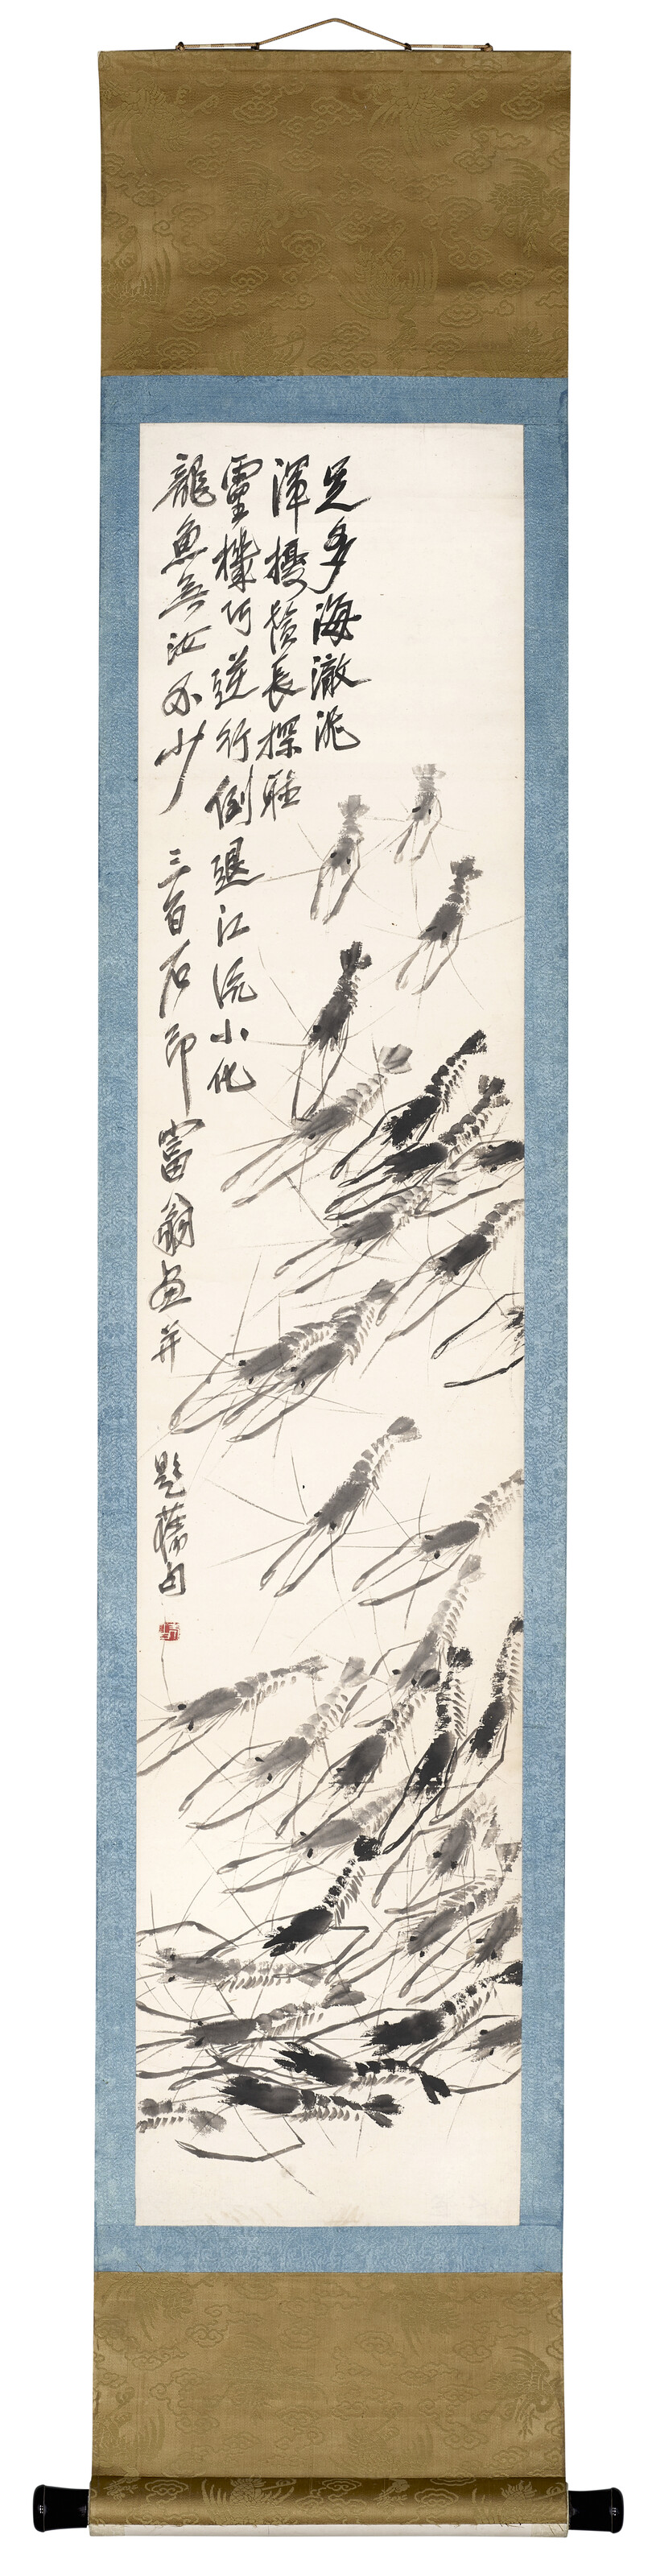 足多海澈泥
渾擾鬚長探聽
靈機巧逆行倒退江流小化
龍魚無汝不少 三百石印富翁畫并題舊句